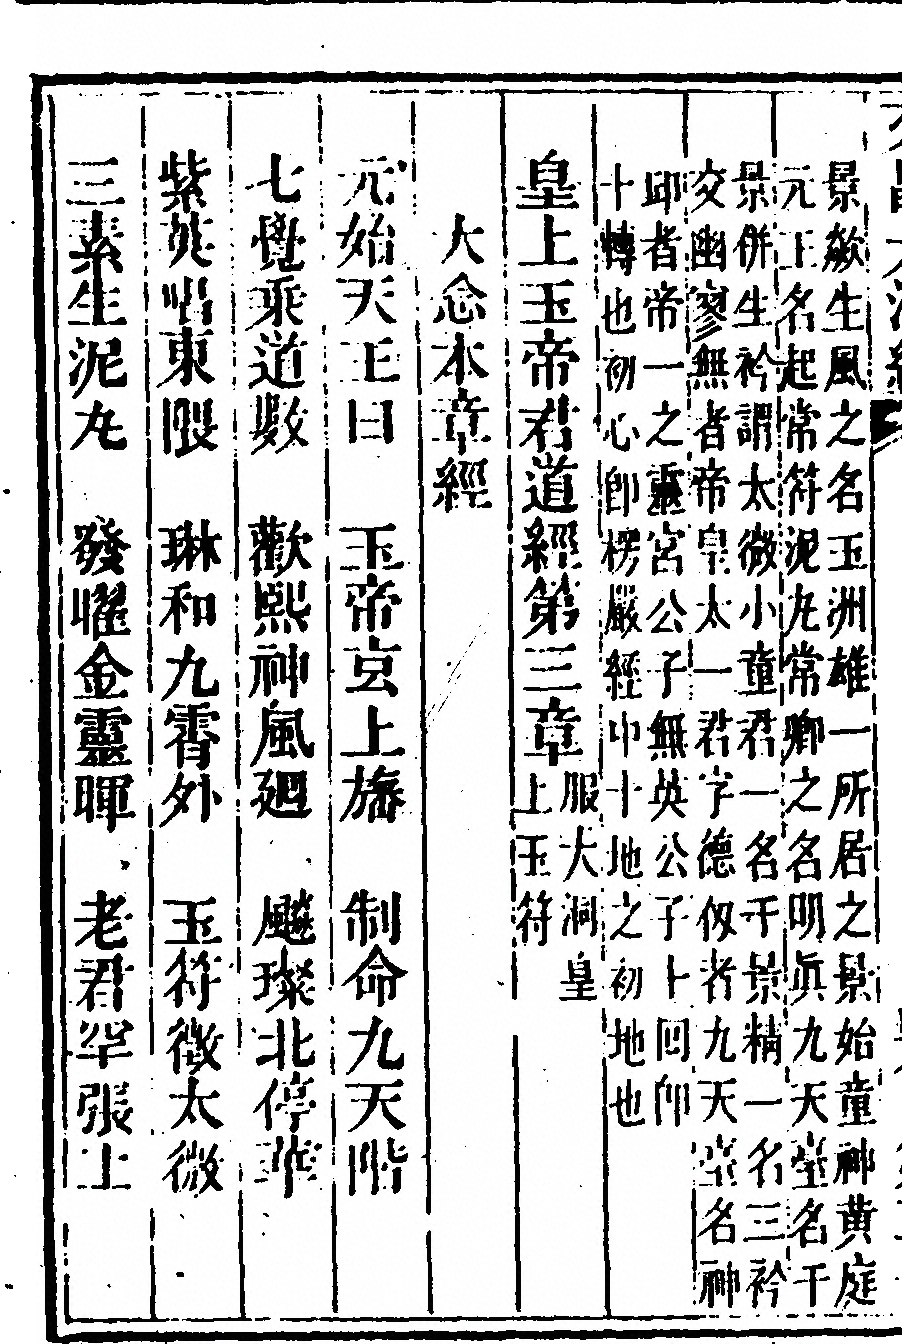 景歘生風之名玉洲雄一所居之景始童神黄庭
元王名起常符泥丸常卿之名明真九天臺名千
景併生衿謂太微小童君一名千景精一名三衿
交幽寥無者帝皇太一君字德伋者九天室名神
邱者帝一之靈宮公子無英公子卜囘卽
十轉也初心卽楞嚴經中十地之初地也
皇上玉帝君道經第三章
服大洞皇
上玉符
大念本章經
元始天王曰　玉帝玄上旛　制命九天階
七覺乘道數　歡熙神風廻　飈璨北停華
紫英唱東隈　琳和九霄外　玉符徵太微
三素生泥丸　發曜金靈暉　老君罕張上